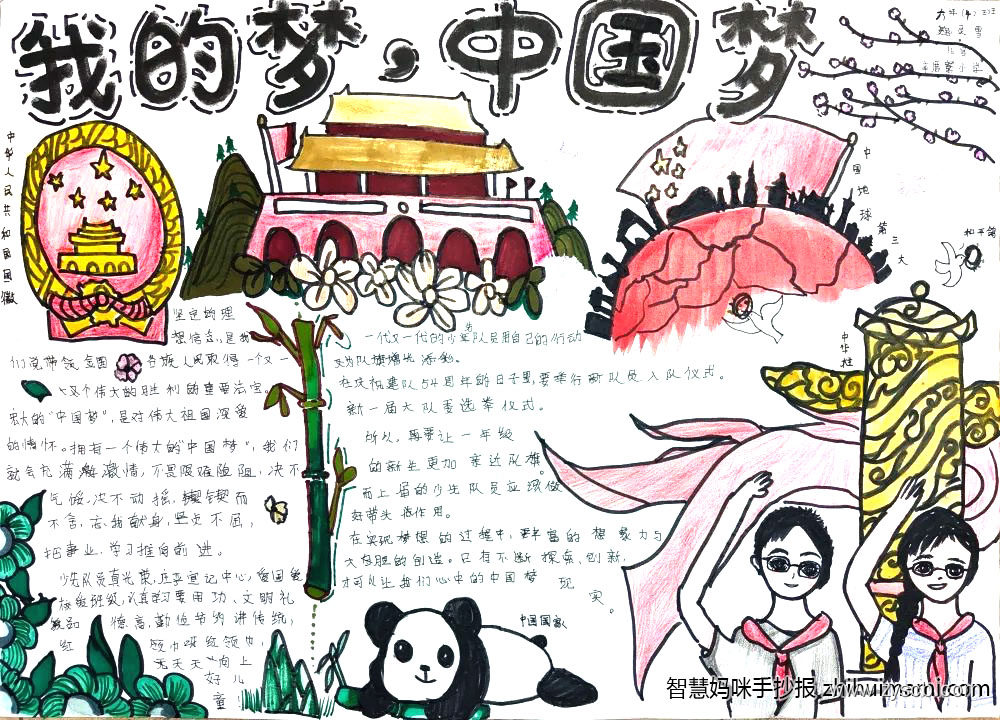 我的梦，中国梦
六年（4）班
中华人民共和国国徽
中国地球第三大
和平鸽
中华柱
坚定的理
想信念，是我
们党带领全国各族人民取得一个又一
个伟大的胜利的重要法宝。
宏大的“中国梦”，是对伟大祖国深爱
的情怀。拥有一个伟大的“中国梦”，我们
就会充满激情，不畏艰难险阻，决不
气馁，决不动摇，锲锲而
不舍，去我献身，坚贞不屈，
把事业、学习推向前进。
少先队员真光荣，
班级，认真学习要用功、文明礼
德高，勤俭节约讲传统，
红领巾呀红领巾，
天天“向上
好儿
童
一代又一代的少年队员用自己的行动
为队旗增光添彩。
在庆祝建队54周年的日子里，要举行新队员入队仪式。
新一届大队委选举仪式。
所以，再要让一年级
的新生更加亲近队旗。
而上届的少先队员应该做
好带头作用。
在实现梦想的过程中，要丰富的想象力与
大胆的创造。只有不断探索，创新，
才可以让我们心中的中国梦现
实。
中国国宝
智慧妈咪手抄报 zhihuizyami.com